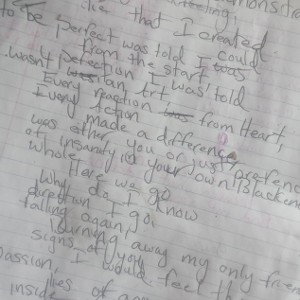 lie that I created
To be perfect was told I could
from the start
wasn't perfection I was told
Every reaction an Art.
Every Action from Heart,
made a difference
was either you or just preference
of insanity in your own Blacken
whole.
Here we go
Why do I know
direction I go,
falling again,
burning away my only frien
signs of you
passion, I would feel th
inside lies of a